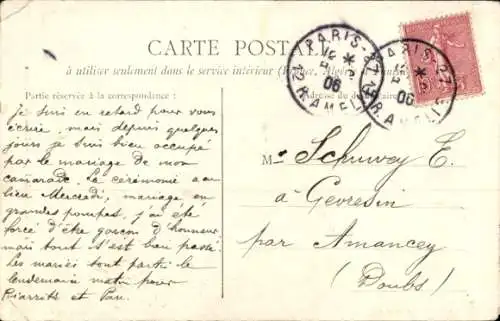 CARTE POSTALE
à utiliser seulement dans le service intérieur (France, Algérie et Tunisie)
Partie réservée à la correspondance :
Adresse du destinataire
PARIS-27 12 R. AMELIE
06
PARIS-27 12 R. AMELIE
06
Je suis en retard pour vous
écrire, mais depuis quelques
jours je suis bien occupé
par le mariage de mon
camarade. La cérémonie a eu
lieu Mercredi, mariage en
grandes pompes, j'ai été
forcé d'être garçon d'honneur
mais tout s'est bien passé.
Les mariés sont partis le
lendemain matin pour
Biarritz et Pau.
M Schuwey E.
à Gevresin
par Amancey
(Doubs)